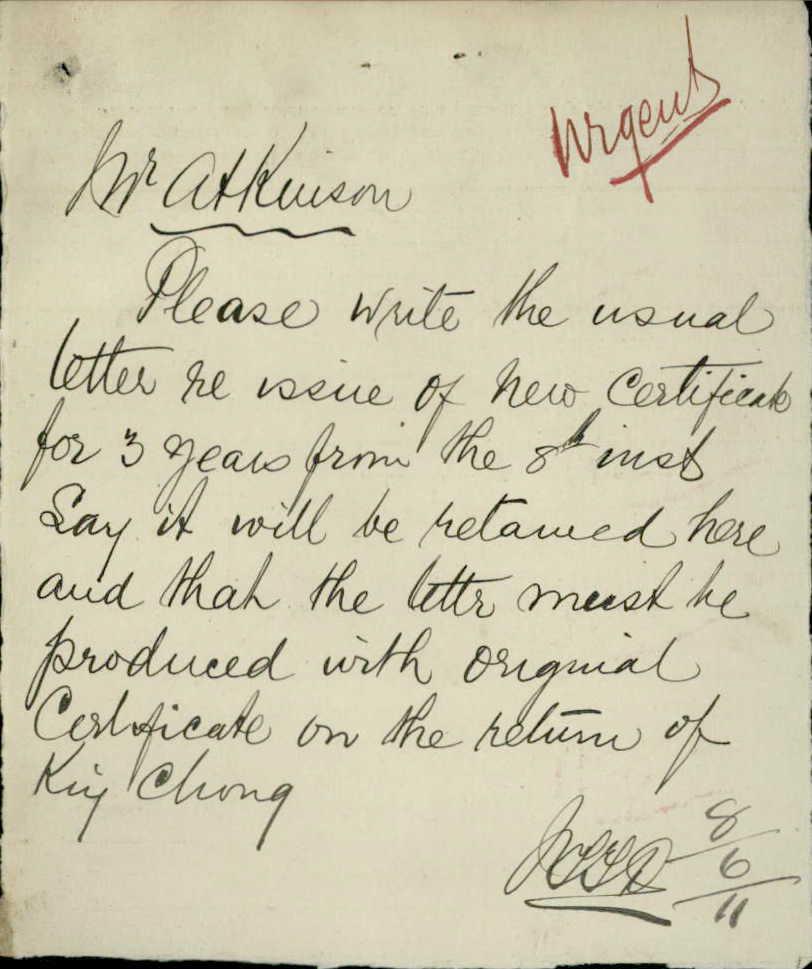 Urgent
Mr Atkinson
Please write the usual
letter re issue of new Certificate
for 3 years from the 8th inst
Say it will be retained here
and that the letter must be
produced with original
Certificate on the return of
Chong
8
6
11